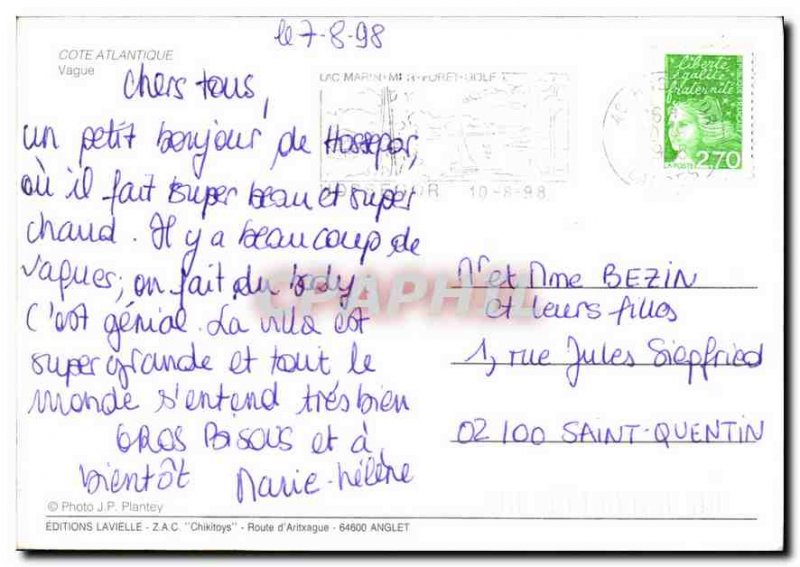 le 7-8-98
COTE ATLANTIQUE
Vague
Chers tous,
un petit bonjour de Hossegor,
où il fait super beau et super
chaud. Il y a beaucoup de
vagues; on fait du body
C'est génial. La villa est
super grande et tout le
monde s'entend très bien
GROS BISOUS et à
bientôt Marie-Hélène
LAC MARIN-MER-FORET-GOLF
HOSSEGOR 10-8-98
liberté
égalité
fraternité
LA POSTE
2,70
Mr et Mme BEZIN
et leurs filles
1, rue Jules Siegfried
02100 SAINT-QUENTIN
CPAPHIL
© Photo J.P. Plantey
ÉDITIONS LAVIELLE - Z.A.C. "Chikitoys" - Route d'Aritxague - 64600 ANGLET